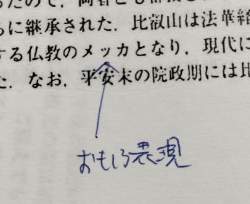 らに継承された．比叡山は法華
する仏教のメッカとなり，現代に
た．なお，平安末の院政期には比
おもしろ表現